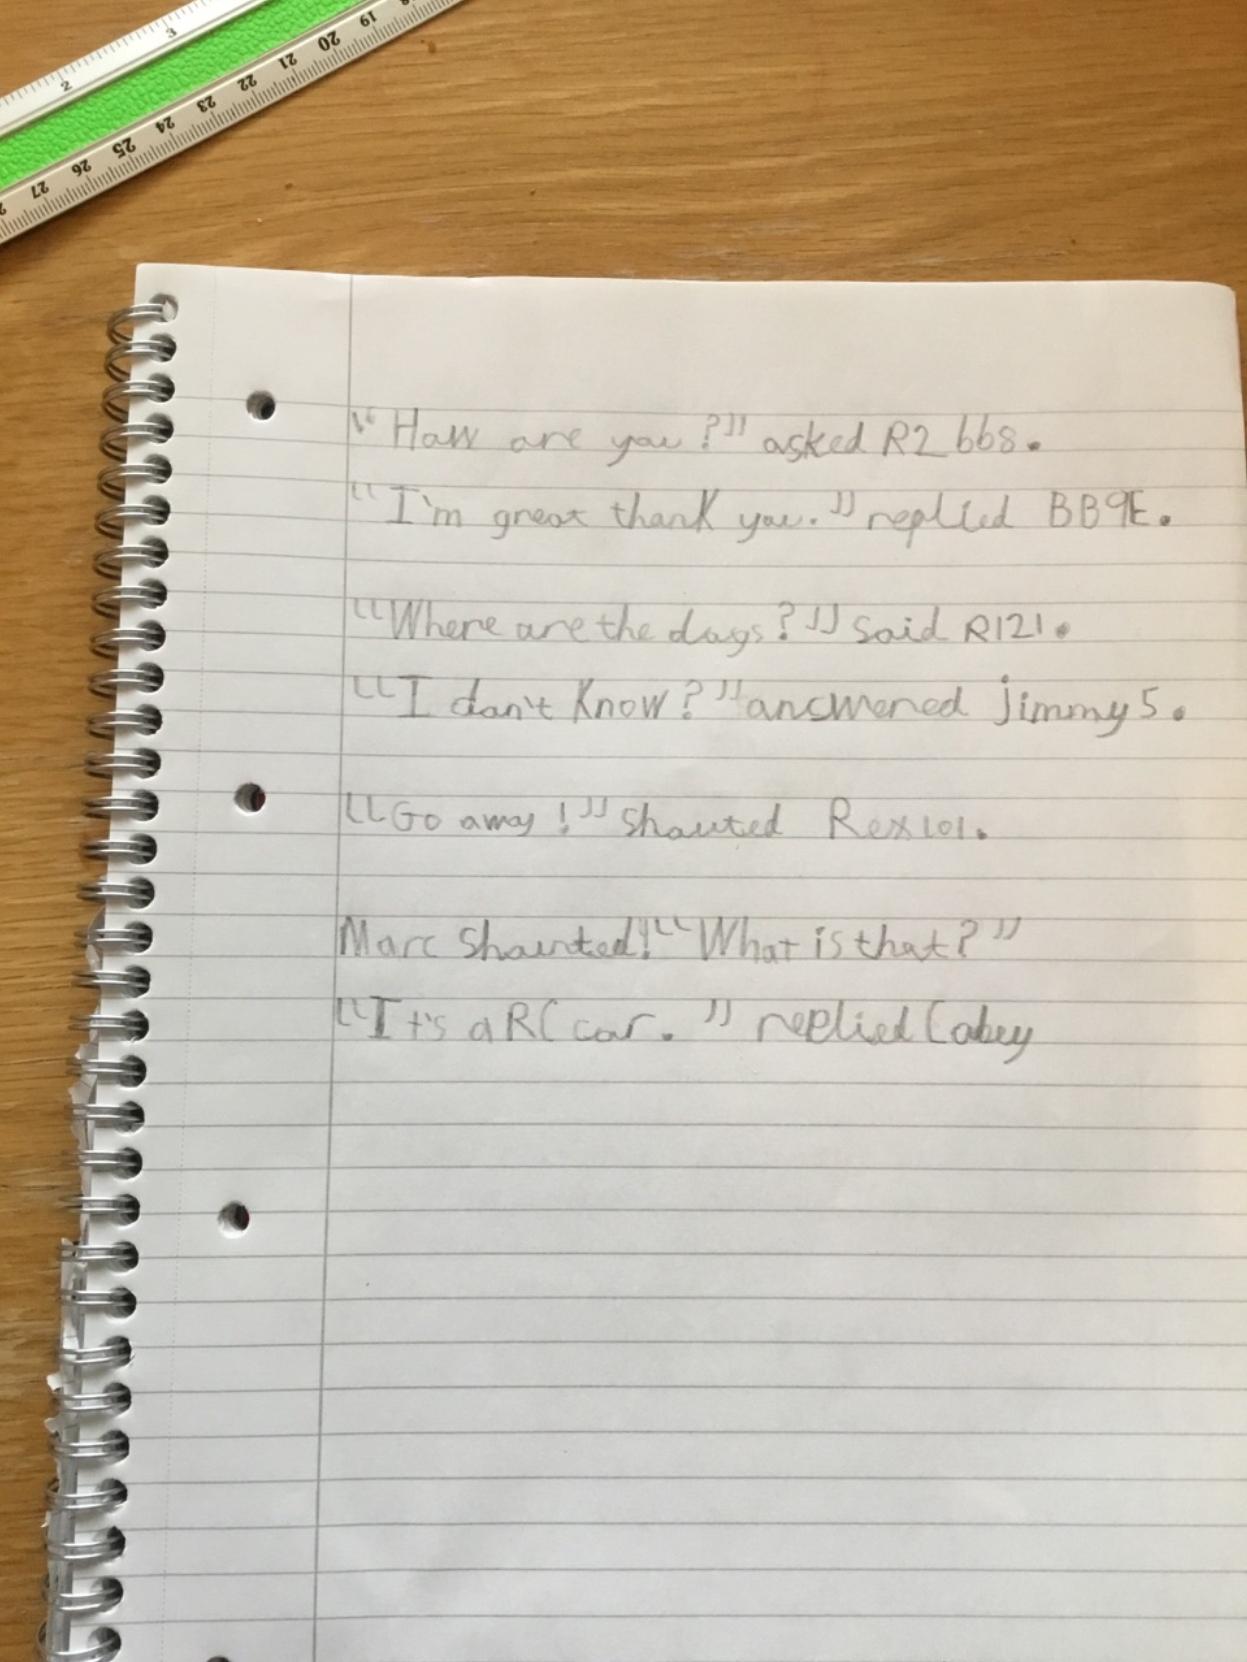 3
2
18
19
20
21
22
23
24
25
26
27
“How are you?” asked R2 bb8.
“I'm great thank you.” replied BB9E.
“Where are the dogs?” said R121.
“I don't know?” answered jimmy5.
“Go away!” shouted Rex101.
Marc shouted! “What is that?”
“It's a RC car.” replied Cabey